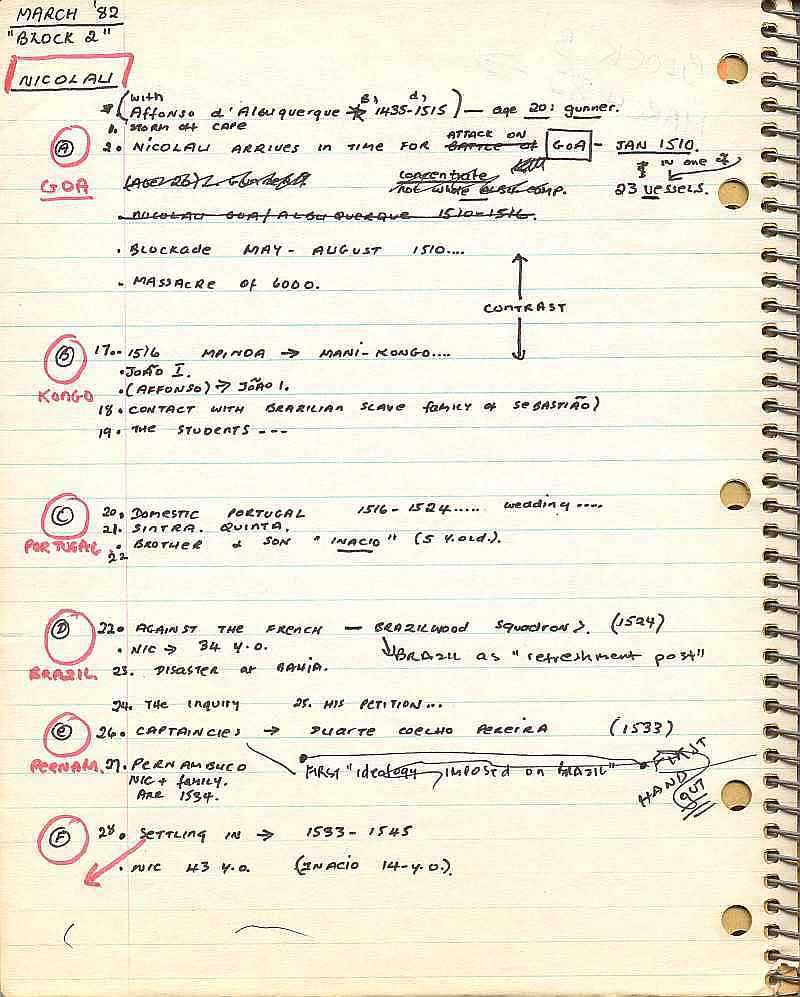 MARCH '82
"BLOCK 2"
NICOLAU
(with
Affonso d'Albuquerque B, 1435- d, 1515) — age 20: gunner.
1. STORM off CAPE
A 2. NICOLAU ARRIVES IN TIME FOR BATTLE of ATTACK ON GOA - JAN 1510.
GOA
IN one of
23 vessels.
concentrate
not whole comp.
NICOLAU GOA/ALBUQUERQUE 1510-1516.
. BLOCKADE MAY - AUGUST 1510....
. MASSACRE OF 6000.
CONTRAST
B 17. 1516 MPINDA → MANI-KONGO....
. JOÃO I.
KONGO . (AFFONSO) → JOÃO I.
18. CONTACT WITH BRAZILIAN SLAVE family of SEBASTIÃO)
19. THE STUDENTS ---
C 20. Domestic PORTUGAL 1516-1524..... wedding....
21. SINTRA. QUINTA.
PORTUGAL 22. BROTHER & SON "INACIO" (5 Y.OLD.).
D 22. AGAINST THE FRENCH — BRAZILWOOD Squadrons. (1524)
. NIC → 34 Y.O. BRAZIL as "refreshment post"
BRAZIL 23. DISASTER at BAHIA.
24. THE Inquiry 25. HIS PETITION...
E 26. CAPTAINCIES → DUARTE COELHO PEREIRA (1533)
PERNAM. 27. PERNAMBUCO FIRST "ideology IMPOSED on BRAZIL" FIRST
NIC + family. HAND
ARR 1534. OUT
F 28. SETTLING IN → 1533-1545
. NIC 43 Y.O. (INACIO 14-Y.O.).